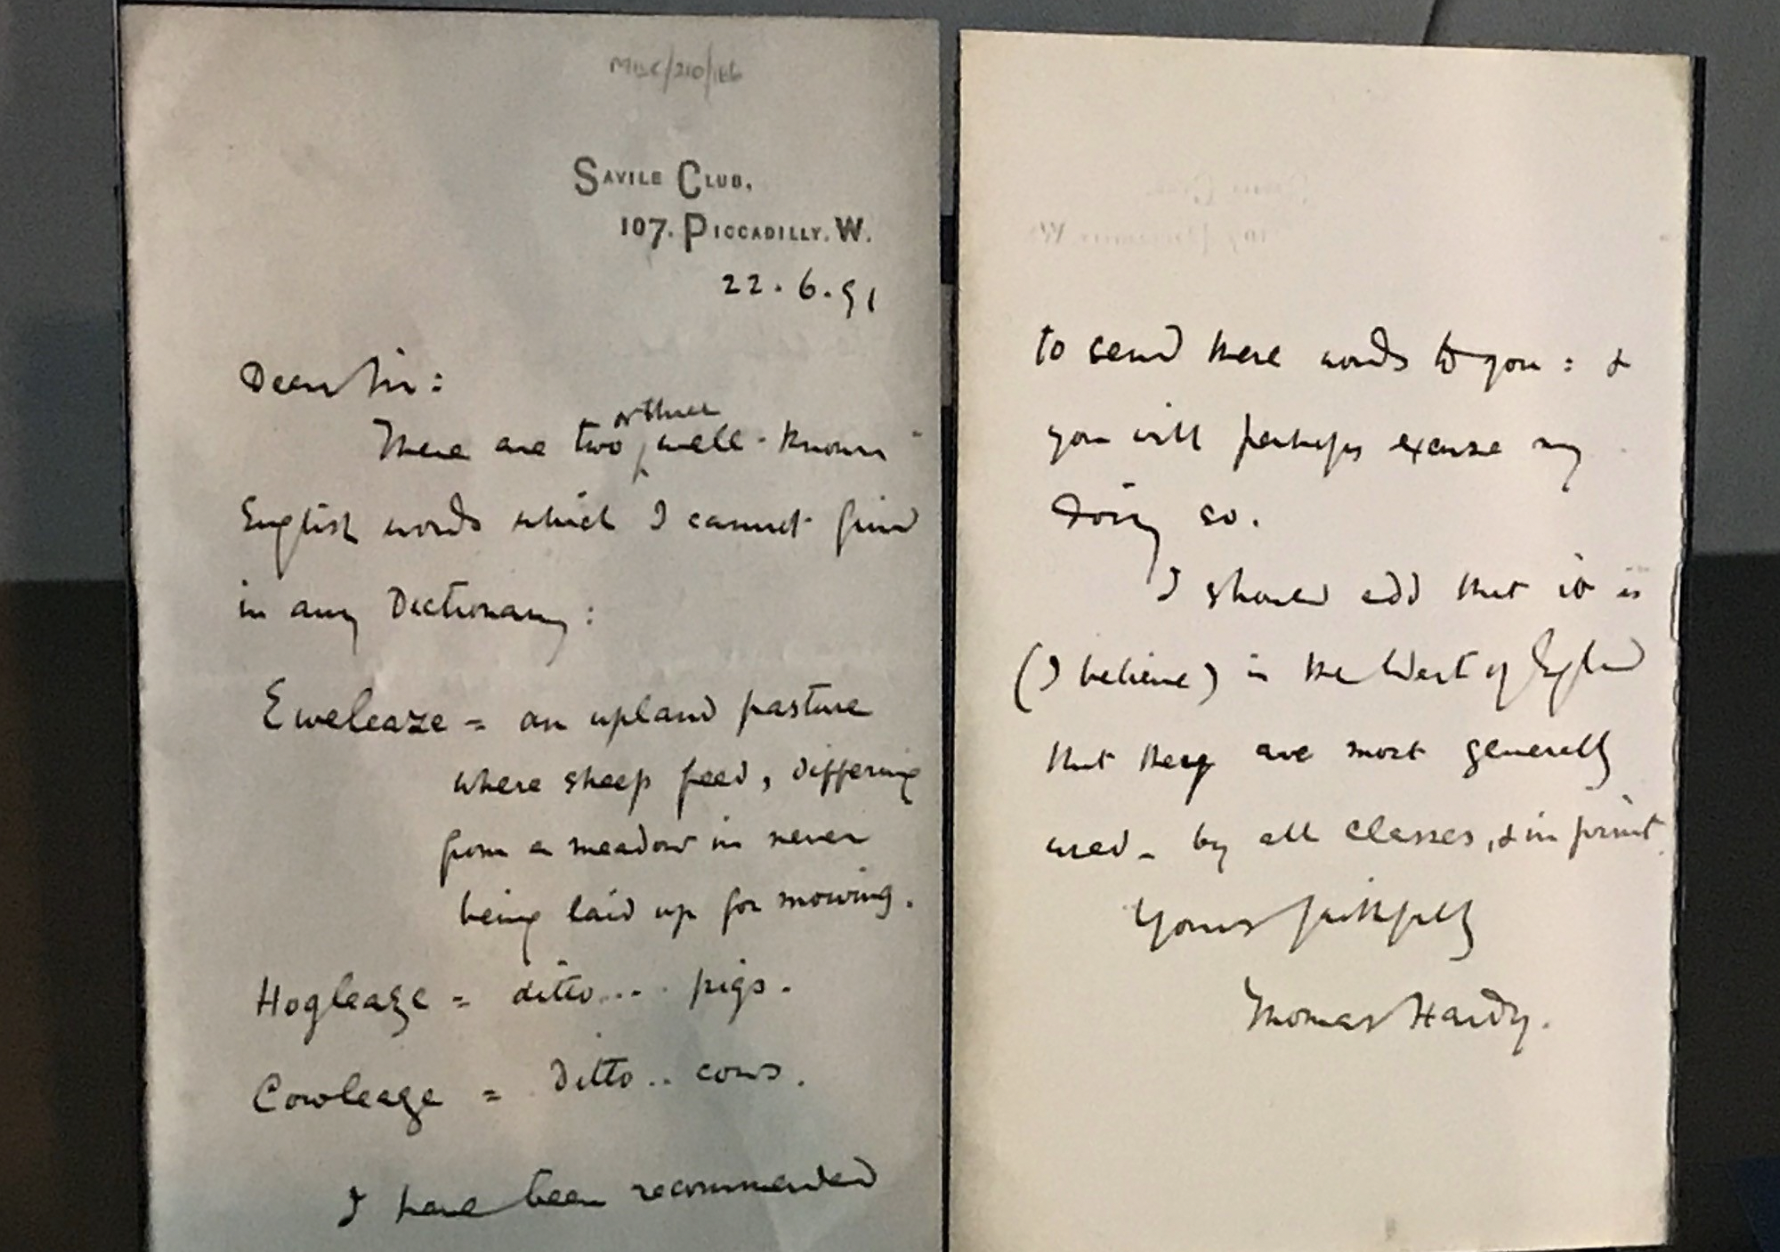 MISC/210/166
SAVILE CLUB,
107. PICCADILLY. W.
22.6.91
Dear Sir:
or three
There are two well-known
English words which I cannot find
in any Dictionary:
Eweleaze = an upland pasture
where sheep feed, differing
from a meadow in never
being laid up for mowing.
Hogleaze = ditto... pigs.
Cowleaze = Ditto.. cows.
I have been recommended
to send these words to you: &
you will perhaps excuse my
doing so.
I should add that it is
(I believe) in the West of England
that they are most generally
used - by all classes, & in print.
Yours faithfully
Thomas Hardy.